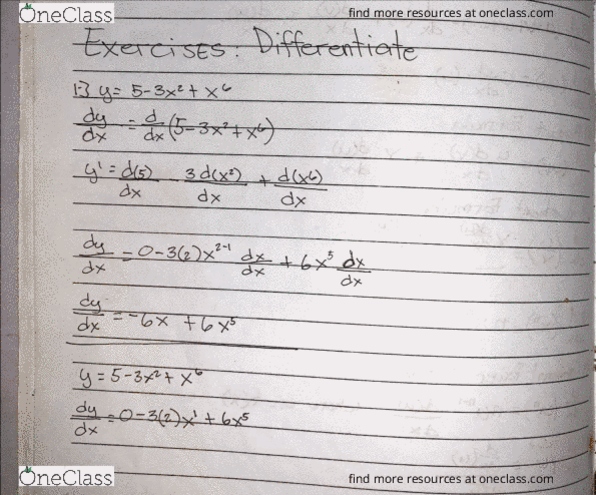 OneClass find more resources at oneclass.com
Exercises: Differentiate
1-) y = 5-3x² + x⁶
dy/dx = d/dx (5-3x²+x⁶)
y' = d(5)/dx - 3d(x²)/dx + d(x⁶)/dx
dy/dx = 0-3(2)x²⁻¹ dx/dx + 6x⁵ dx/dx
dy/dx = -6x + 6x⁵
y = 5-3x² + x⁶
dy/dx = 0-3(2)x¹ + 6x⁵
OneClass find more resources at oneclass.com